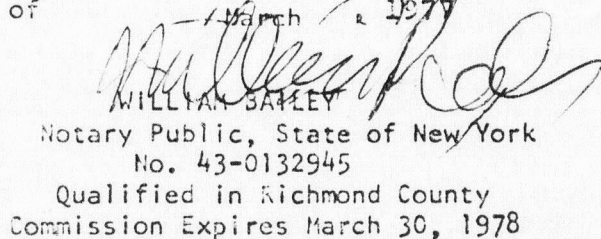 of March 1977
WILLIAM BAILEY
Notary Public, State of New York
No. 43-0132945
Qualified in Richmond County
Commission Expires March 30, 1978